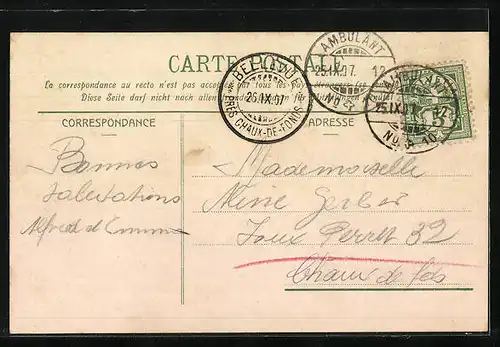 CARTE POSTALE
La correspondance au recto n'est pas acceptée par tous les pays
Diese Seite darf nicht nach allen
CORRESPONDANCE
ADRESSE
AMBULANT
25.IX.07 12
No
BELLEVUE
25.IX.07
PRÈS CHAUX-DE-FONDS
AMBULANT
25.IX.07
No. 3
Bonnes
salutations
Alfred et Emma
Mademoiselle
Gerber
Joux Perret 32
Chaux de fds